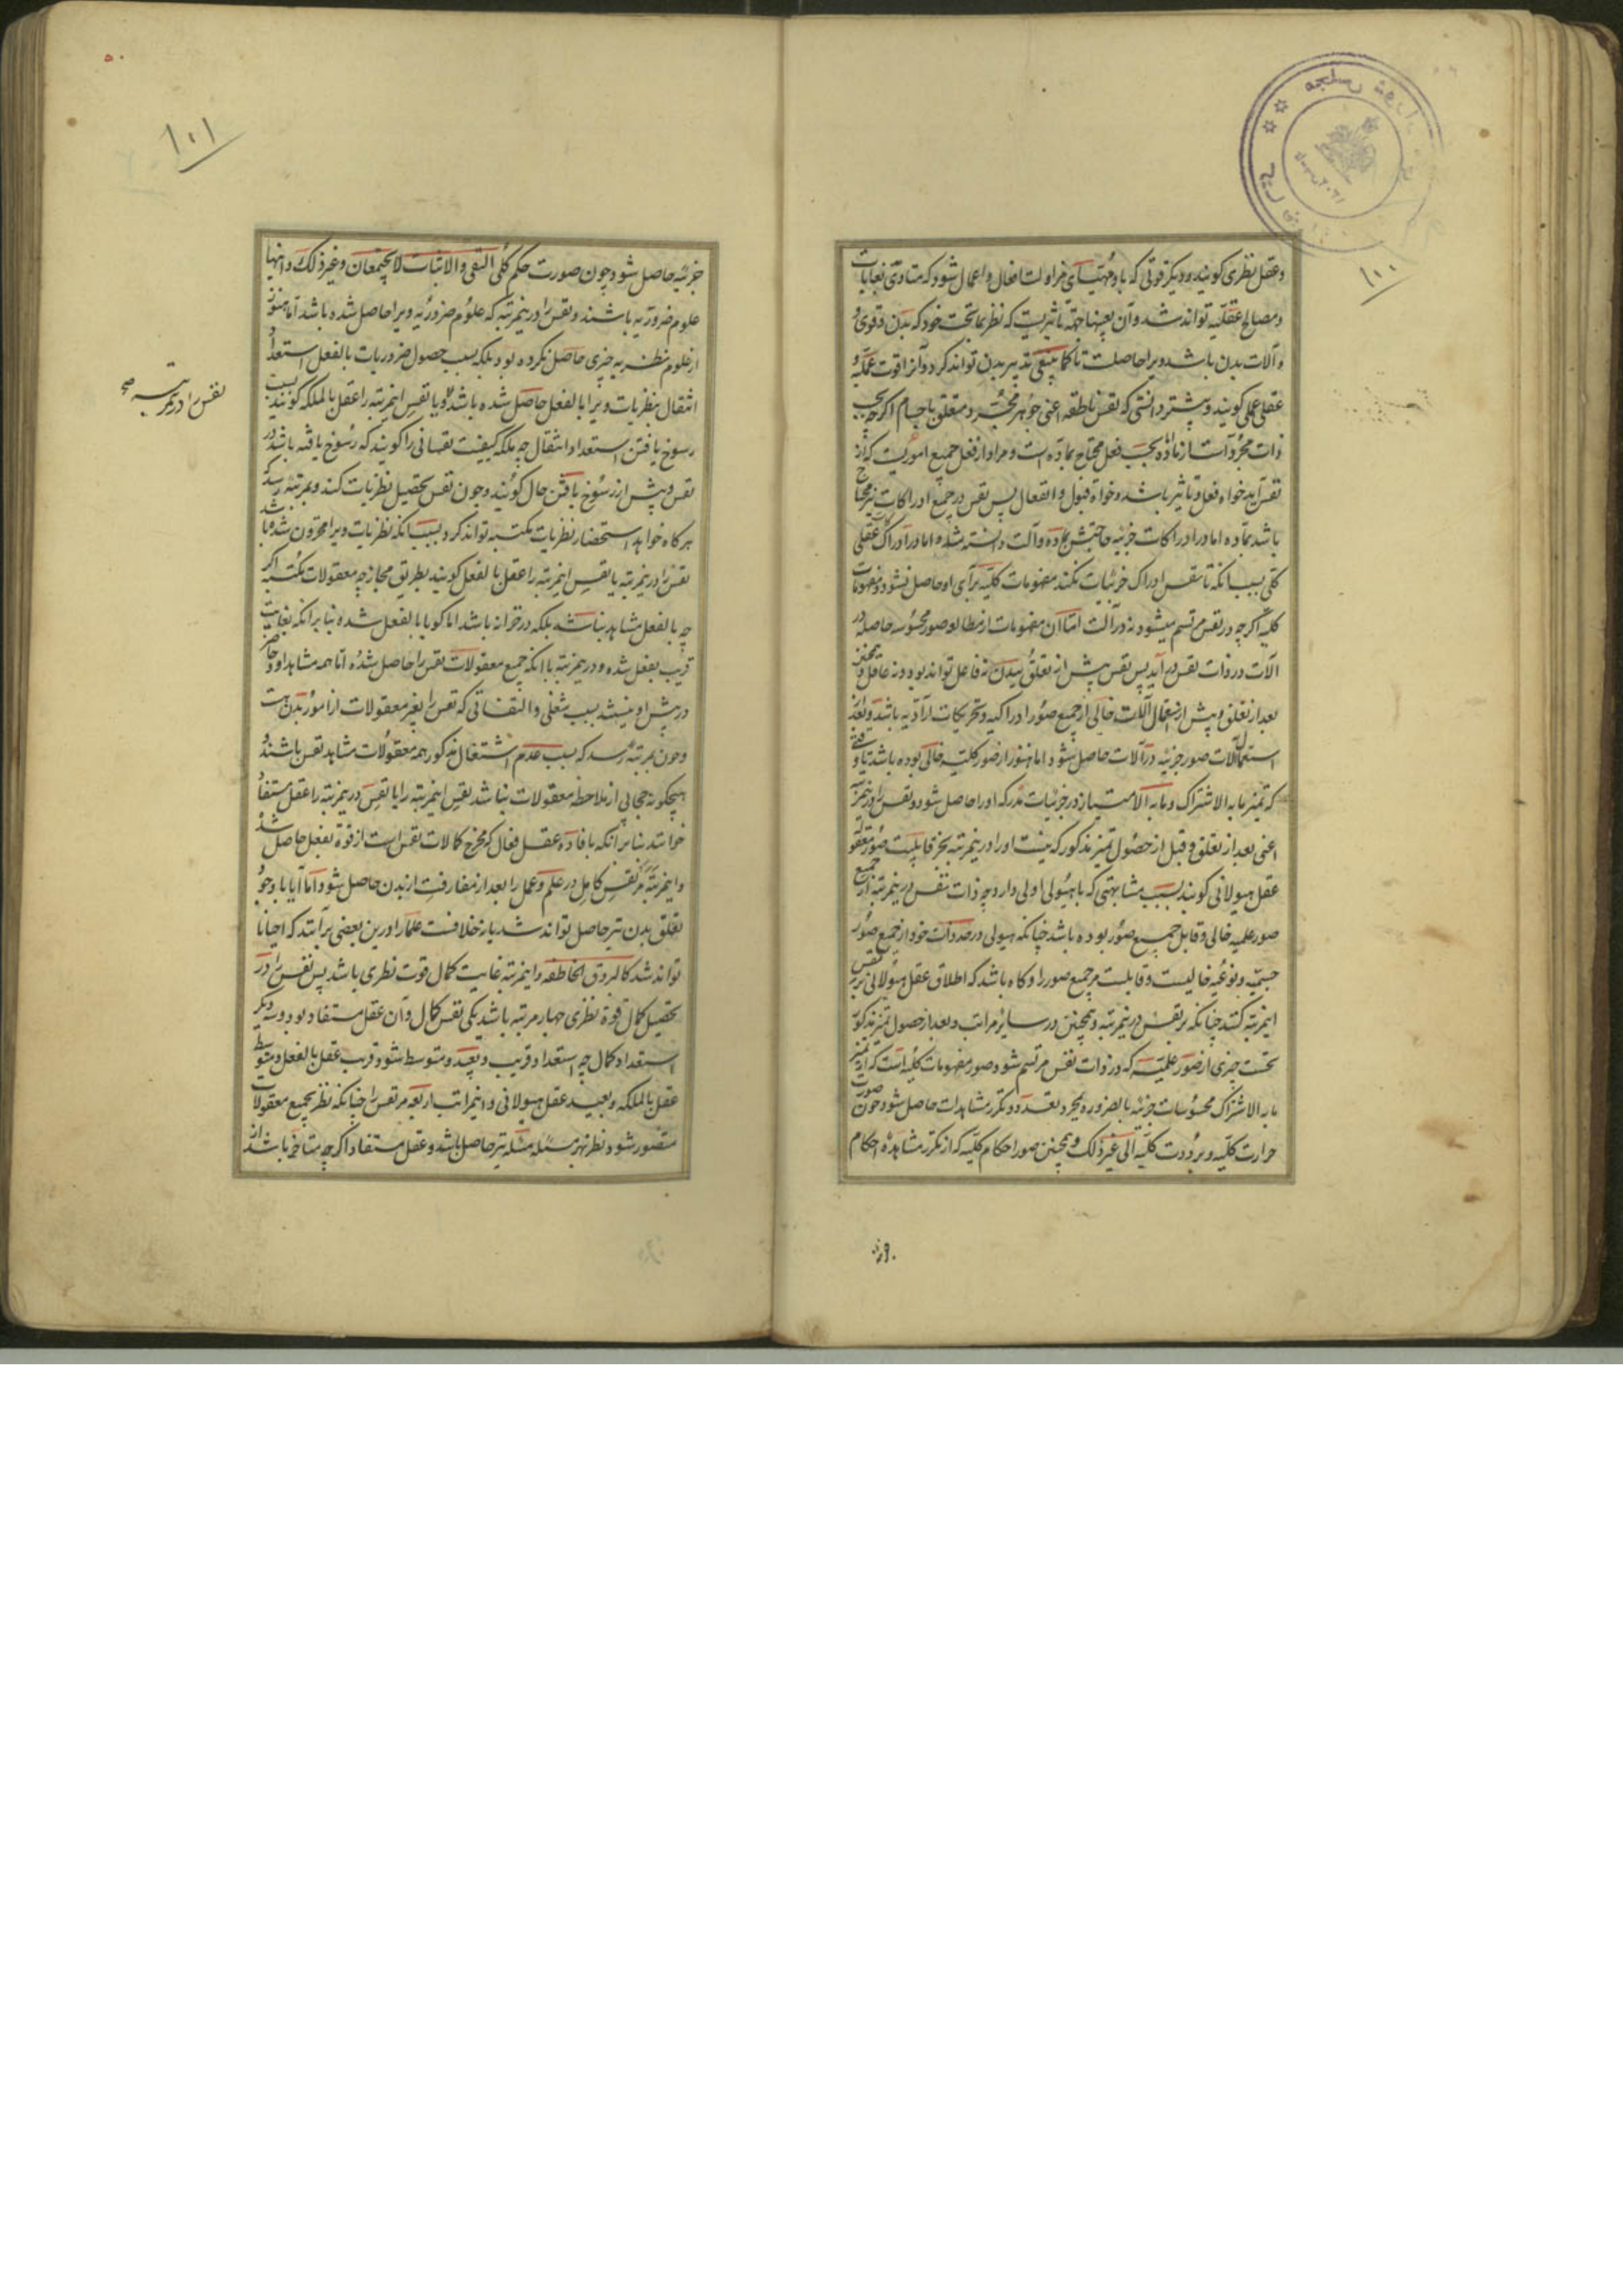 ۱۰۰
و عقل نظری کویند و دیکر قوتی که باو مهیای مزاولت افعال و اعمال شود که متادی بغایات
و مصالح عقلیه تواند شد و آن بعینها جهة تاثیریست که نظر بما تحت خود که بدن و قوی و
و آلات بدن باشد ویرا حاصلست تا کما ینبغی تدبیر بدن تواند کرد و آنرا قوت عملیه و
عقل عملی کویند و پیشتر دانستی که نفس ناطقه اعنی جوهر مجرد متعلق باجسام اکرچه بحسب
ذات مجرد است از ماده اما بحسب فعل محتاج بماده است و مراد از فعل جمیع اموریست که از
نفس آید خواه فعل و تاثیر باشد و خواه قبول و انفعال پس نفس در جمیع ادراکات نیز محتاج
باشد بماده اما در ادراکات جزئیه حاجتش بماده و آلت دانسته شده اما در ادراک عقلی
کلی بسبب انکه تا نفس ادراک جزئیات نکند مفهومات کلیه برای او حاصل نشود و مفهومات
کلیه اکرچه در نفس مرتسم میشود نه در آلت اما آن مفهومات از مطالعه صور محسوسه حاصله در
آلات در ذات نفس در آید پس نفس پیش از تعلق ببدن نه فاعل تواند بود و نه عاقل و همچنین
بعد از تعلق و پیش از استعمال آلات خالی از جمیع صور ادراکیه و تحریکات ارادیه باشد و بعد از
استعمال آلات صور جزئیه در آلات حاصل شود اما هنوز از صور کلیه خالی بوده باشد تا وقتی
که تمیز ما به الاشتراک و ما به الامتیاز در جزئیات مدرکه او را حاصل شود و نفس را در ینمرتبه
اعنی بعد از تعلق و قبل از حصول تمیز مذکور که نیست او را در ینمرتبه بجز قابلیت صور معقوله
عقل هیولانی کویند بسبب مشابهتی که با هیولی اولی دارد چه ذات نفس در ینمرتبه از جمیع
صور علمیه خالی و قابل جمیع صور بوده باشد چنانکه هیولی در حد ذات خود از جمیع صور
جسمیه و نوعیه خالیست و قابلست مر جمیع صور را و کاه باشد که اطلاق عقل هیولانی بر نفس
اینمرتبه کنند چنانکه بر نفس در ینمرتبه و همچنین در سایر مراتب و بعد از حصول تمیز مذکور
نخست چیزی از صور علمیه که در ذات نفس مرتسم شود صور مفهومات کلیه است که از تمیز
ما به الاشتراک محسوسات جزئیه بالضروره بمجرد تعدد و تکرر مشاهدات حاصل شود چون صورت
حرارت کلیه و برودت کلیه الی غیر ذلک و همچنین صور احکام کلیه که از تکرر مشاهده احکام
۱۰۱
جزئیه حاصل شود چون صورت حکم کلی النفی و الاثبات لا یجتمعان و غیر ذلک و اینها
علوم ضروریه باشند و نفس را در ینمرتبه که علوم ضروریه ویرا حاصل شده باشد اما هنوز
از علوم نظریه چیزی حاصل نکرده بود بلکه بسبب حصول ضروریات بالفعل استعداد
انتقال بنظریات ویرا بالفعل حاصل شده باشد و یا نفس اینمرتبه را عقل بالملکه کویند بسبب
رسوخ یافتن استعداد انتقال چه ملکه کیفیت نفسانی را کویند که رسوخ یافته باشد در
نفس و پیش از رسوخ یافتن حال کویند و چون نفس تحصیل نظریات کند و بمرتبه رسد که
هرکاه خواهد استحضار نظریات مکتسبه تواند کرد بسبب انکه نظریات ویرا مخزون شده باشد
نفس را در ینمرتبه یا نفس اینمرتبه را عقل بالفعل کویند بطریق مجاز چه معقولات مکتسبه اکر
چه بالفعل مشاهد نباشد بلکه در خزانه باشد اما کویا بالفعل شده بنا بر انکه بغایت
قریب بفعل شده و در ینمرتبه با انکه جمیع معقولات نفس را حاصل شده اما همه مشاهد او و حاضر
در پیش او نیستند بسبب شغلی و التفاتی که نفس را بغیر معقولات از امور بدن هست
و چون بمرتبه رسد که بسبب عدم اشتغال مذکور همه معقولات مشاهد نفس باشند و
هیچکونه حجابی از ملاحظه معقولات نباشد نفس اینمرتبه را یا نفس در ینمرتبه را عقل مستفاد
خوانند بنا بر انکه بافاده عقل فعال که مخرج کمالات نفس است از قوة بفعل حاصل شد
و اینمرتبه مر نفس کامل در علم و عمل را بعد از مفارقت از بدن حاصل شود اما آیا با وجود
تعلق بدن نیز حاصل تواند شد یا نه خلافست علما را درین بعضی بر آنند که احیانا
تواند شد کالبروق الخاطفه و اینمرتبه غایت کمال قوت نظری باشد پس نفس را در
تحصیل کمال قوة نظری چهار مرتبه باشد یکی نفس کمال و آن عقل مستفاد بود و سه دیکر
استعداد کمال چه استعداد قریب و بعید و متوسط شود قریب عقل بالفعل و متوسط
عقل بالملکه و بعید عقل هیولانی و اینمراتب اربعه مر نفس را چنانکه نظر بجمیع معقولات
متصور شود نظر بهر مسئله مسئله نیز حاصل باشد و عقل مستفاد اکرچه متاخر باشد از
نفس را در ینمرتبه صح